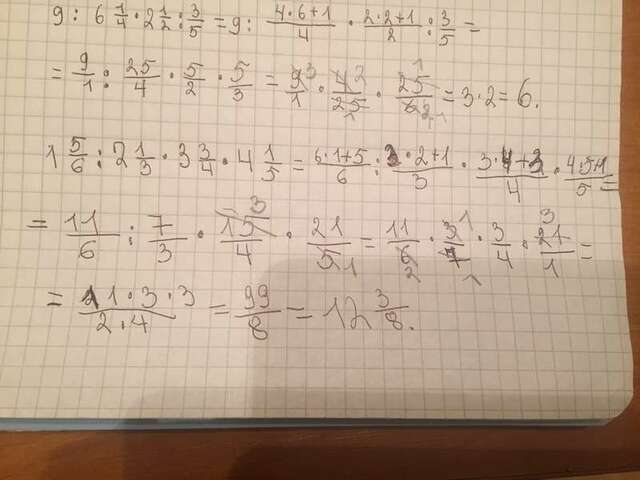 9 : 6 1/4 · 2 1/2 : 3/5 = 9 : (4·6+1)/4 · (2·2+1)/2 : 3/5 =
= 9/1 : 25/4 · 5/2 · 5/3 = 9 3/1 · 4 2/25 1 · 25 1/6 2 1 = 3·2 = 6.
1 5/6 : 2 1/3 · 3 3/4 · 4 1/5 = (6·1+5)/6 : (3·2+1)/3 · (3·4+3)/4 · (4·5+1)/5 =
= 11/6 : 7/3 · 15 3/4 · 21/5 1 = 11/6 2 · 3 1/7 1 · 3/4 · 21 3/1 =
= (11·3·3)/(2·4) = 99/8 = 12 3/8.